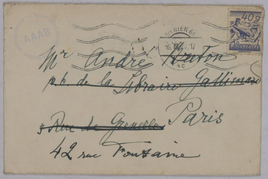 AAAB
WIEN
40 g
Mr André Breton
p.b. de la Librairie Gallimard
3 Rue de Grenelle Paris
42 rue Fontaine